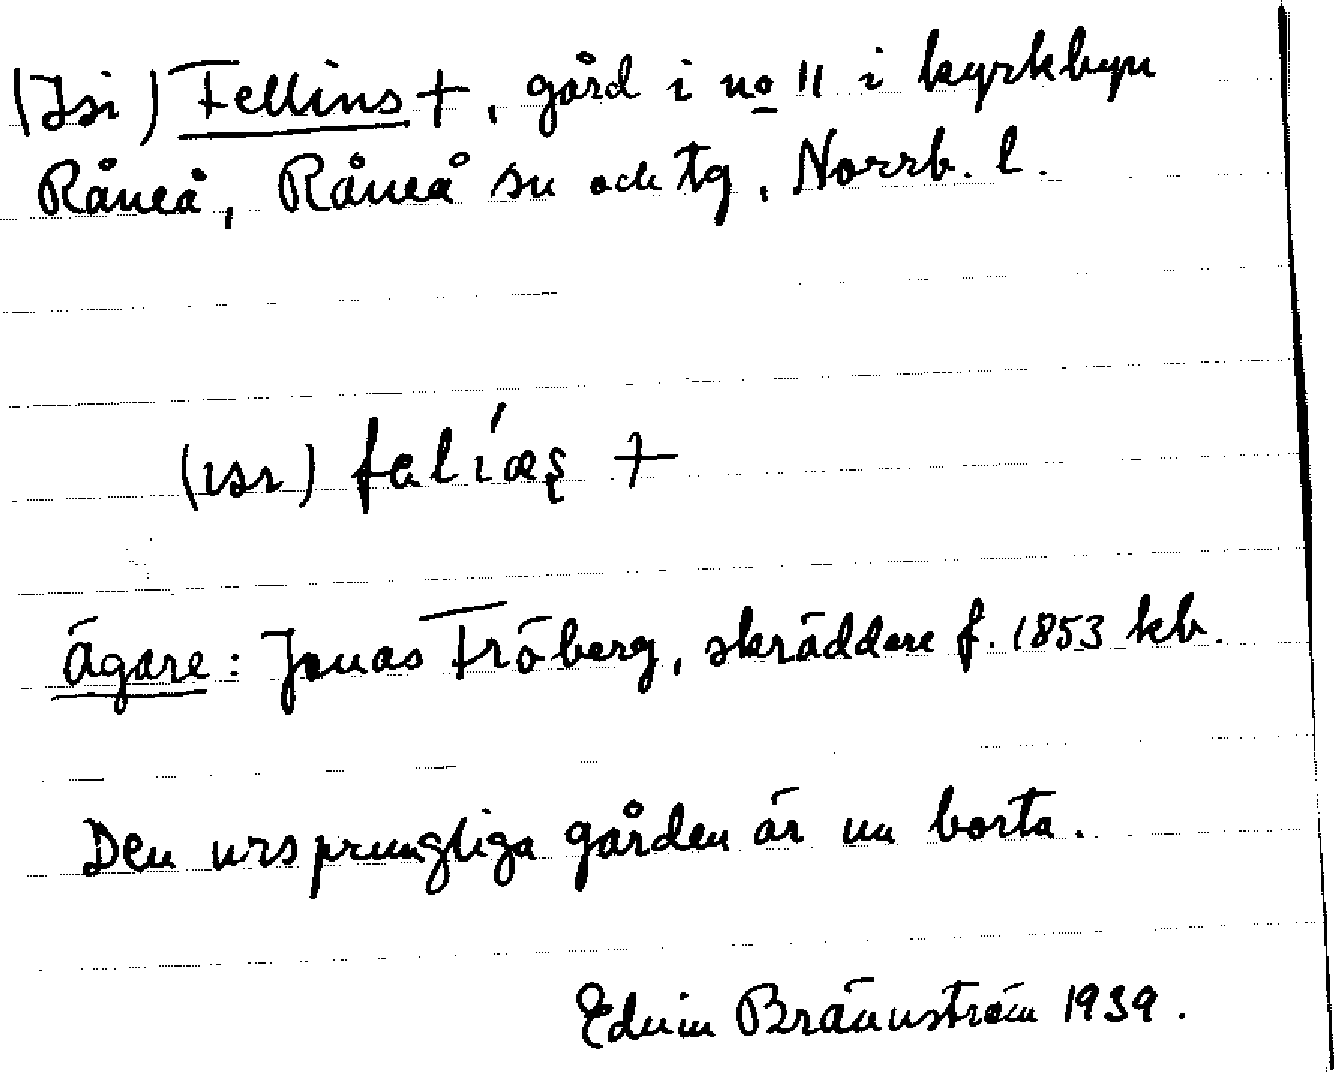 (Isi) Fellins +, gård i no 11 i kyrkbyn
Råneå, Råneå sn och tg, Norrb. l.
(ısı) +
Ägare: Jonas Fröberg, skräddare f. 1853 kb.
Den ursprungliga gården är nu borta.
Edvin Brännström 1939.